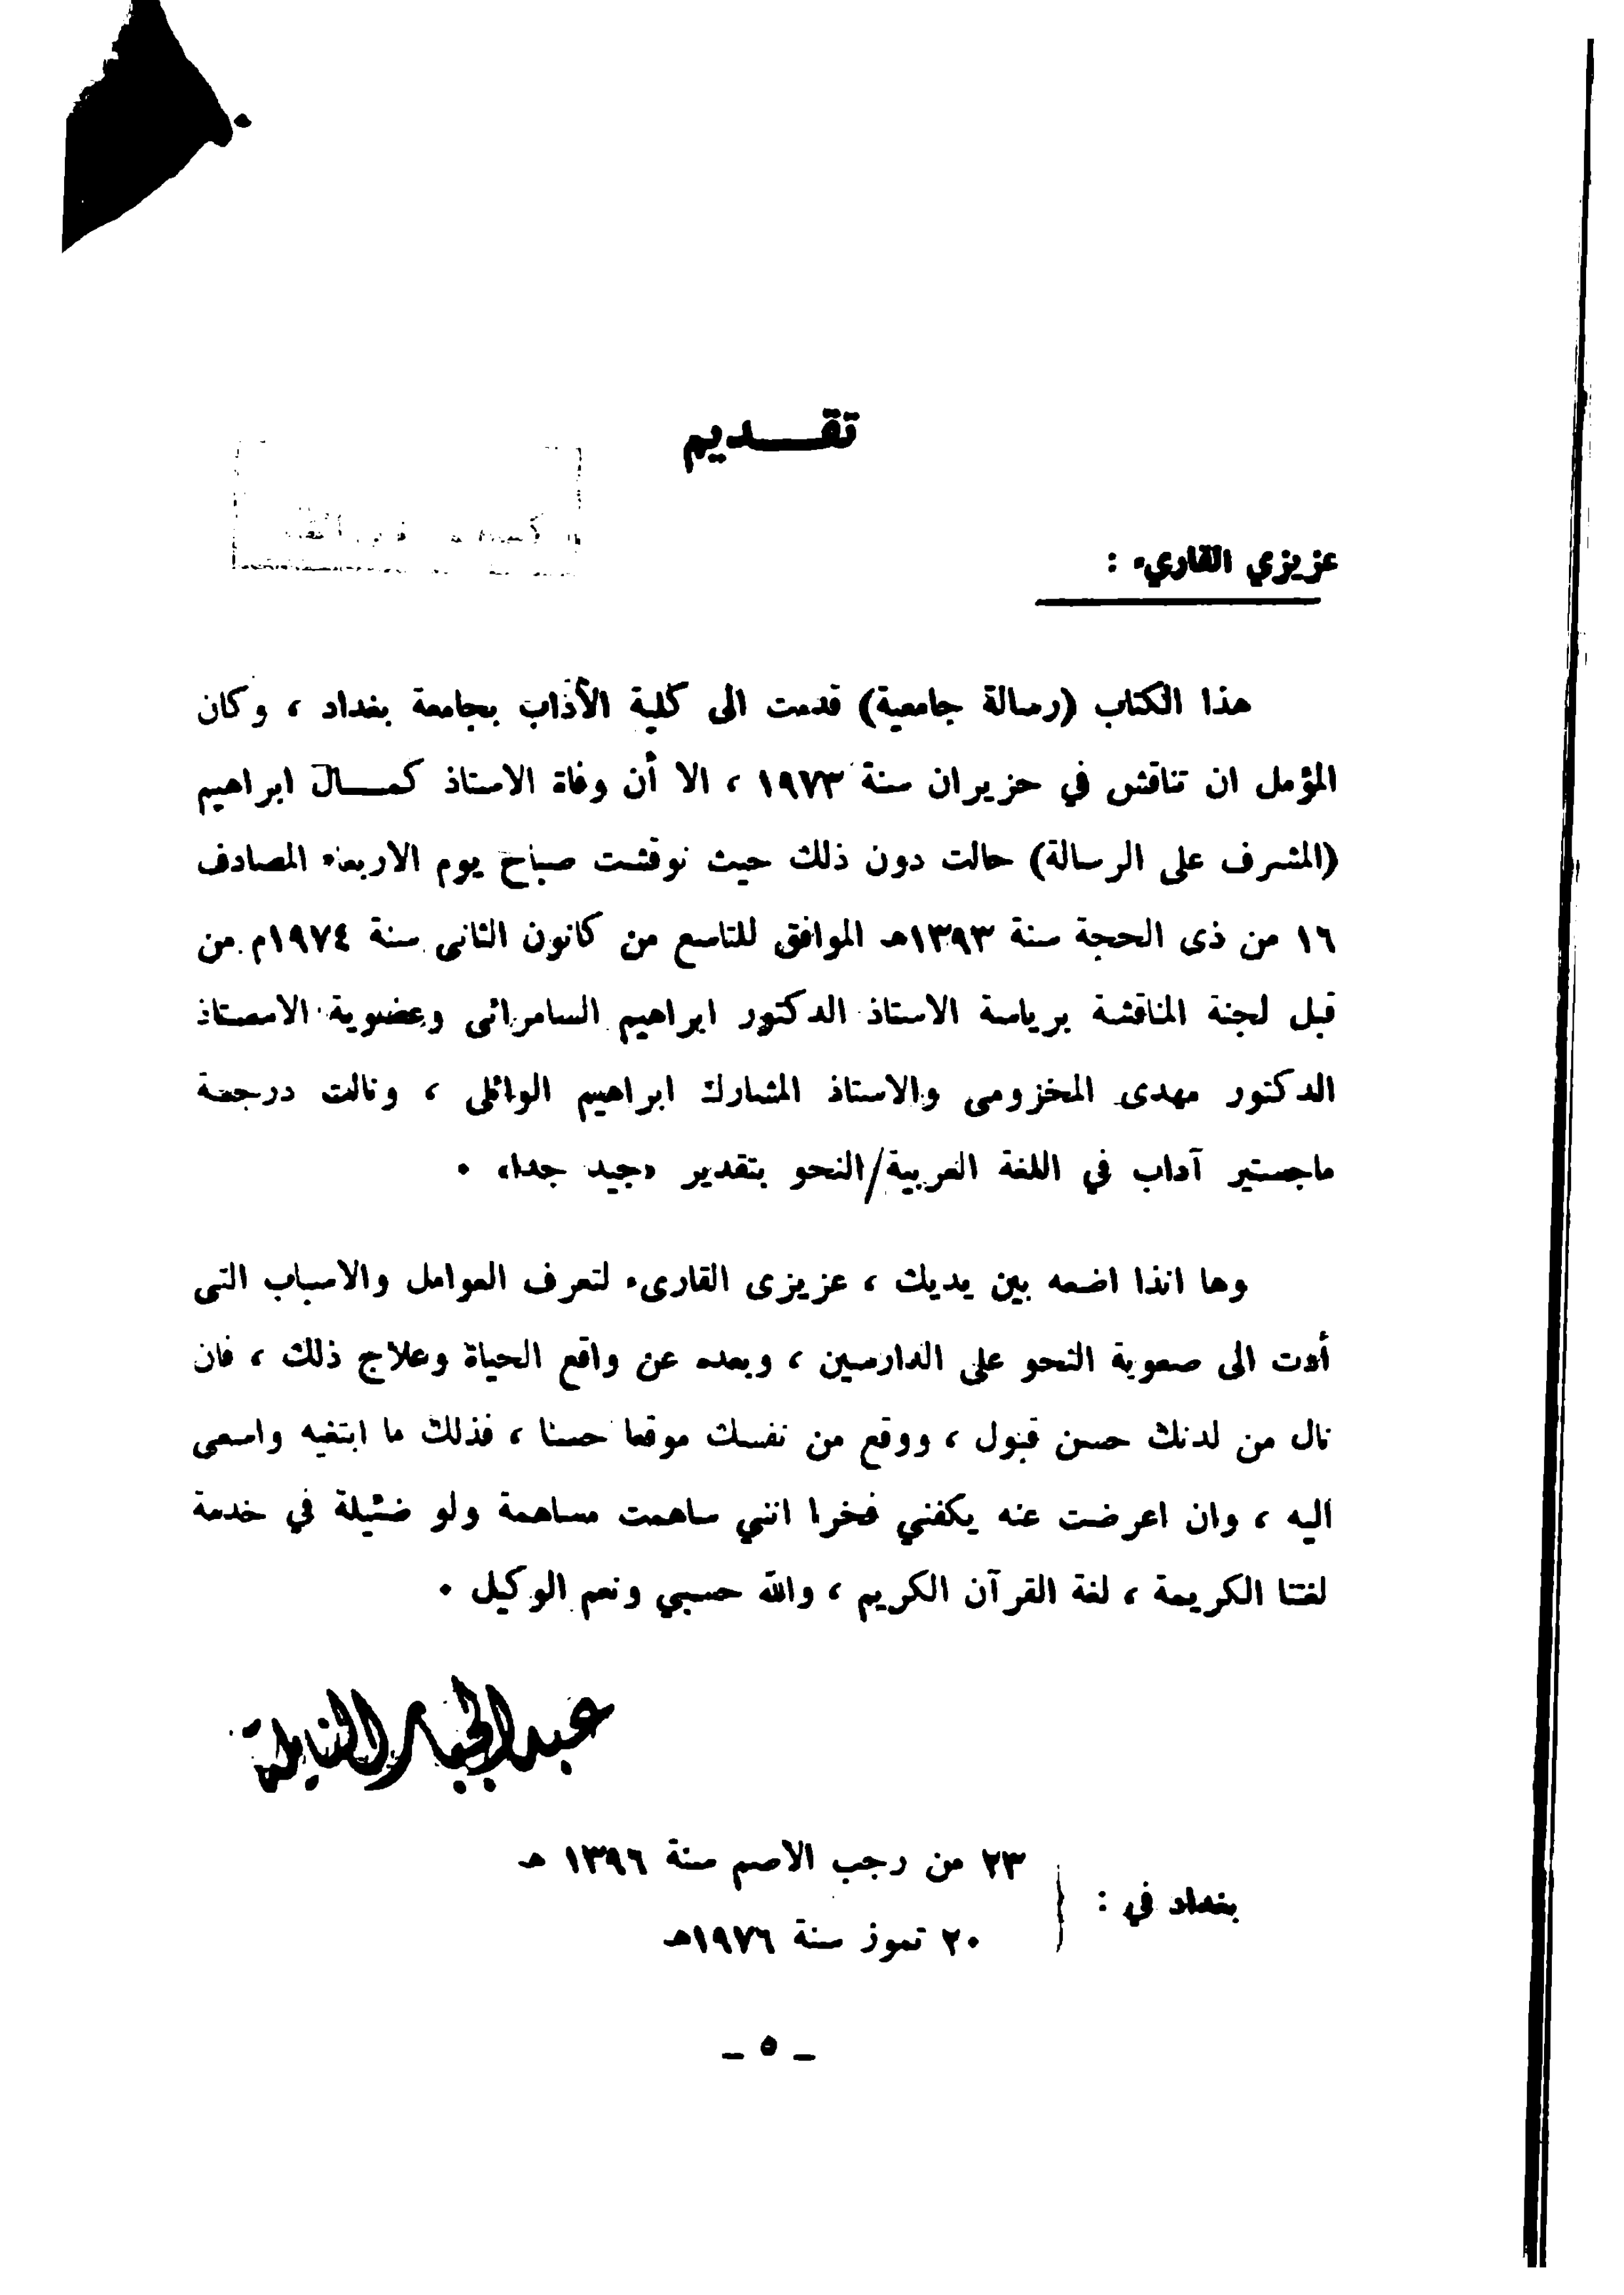 تقـــديم
عزيزي القاريء :
هذا الكتاب (رسالة جامعية) قدمت الى كلية الأداب بجامعة بغداد ، وكان
المؤمل ان تناقش في حزيران سنة ١٩٧٣ ، الا أن وفاة الاستاذ كمـــال ابراهيم
(المشرف على الرسالة) حالت دون ذلك حيث نوقشت صباح يوم الاربعاء المصادف
١٦ من ذى الحجة سنة ١٣٩٣هـ الموافق للتاسع من كانون الثانى سنة ١٩٧٤م من
قبل لجنة المناقشة برياسة الاستاذ الدكتور ابراهيم السامرائى وعضوية الاستاذ
الدكتور مهدى المخزومى والاستاذ المشارك ابراهيم الوائلى ، ونالت درجة
ماجستير آداب في اللغة العربية/النحو بتقدير «جيد جدا» .
وها انذا اضعه بين يديك ، عزيزى القارىء لتعرف العوامل والاسباب التى
أدت الى صعوبة النحو على الدارسين ، وبعده عن واقع الحياة وعلاج ذلك ، فان
نال من لدنك حسن قبول ، ووقع من نفسك موقعا حسنا ، فذلك ما ابتغيه واسعى
اليه ، وان اعرضت عنه يكفني فخرا انني ساهمت مساهمة ولو ضئيلة في خدمة
لغتنا الكريمة ، لغة القرآن الكريم ، والله حسبي ونعم الوكيل .
عبد الجبار النايلة
بغداد في :
٢٣ من رجب الاصم سنة ١٣٩٦ هـ
٢٠ تموز سنة ١٩٧٦هـ
ـ ٥ ـ